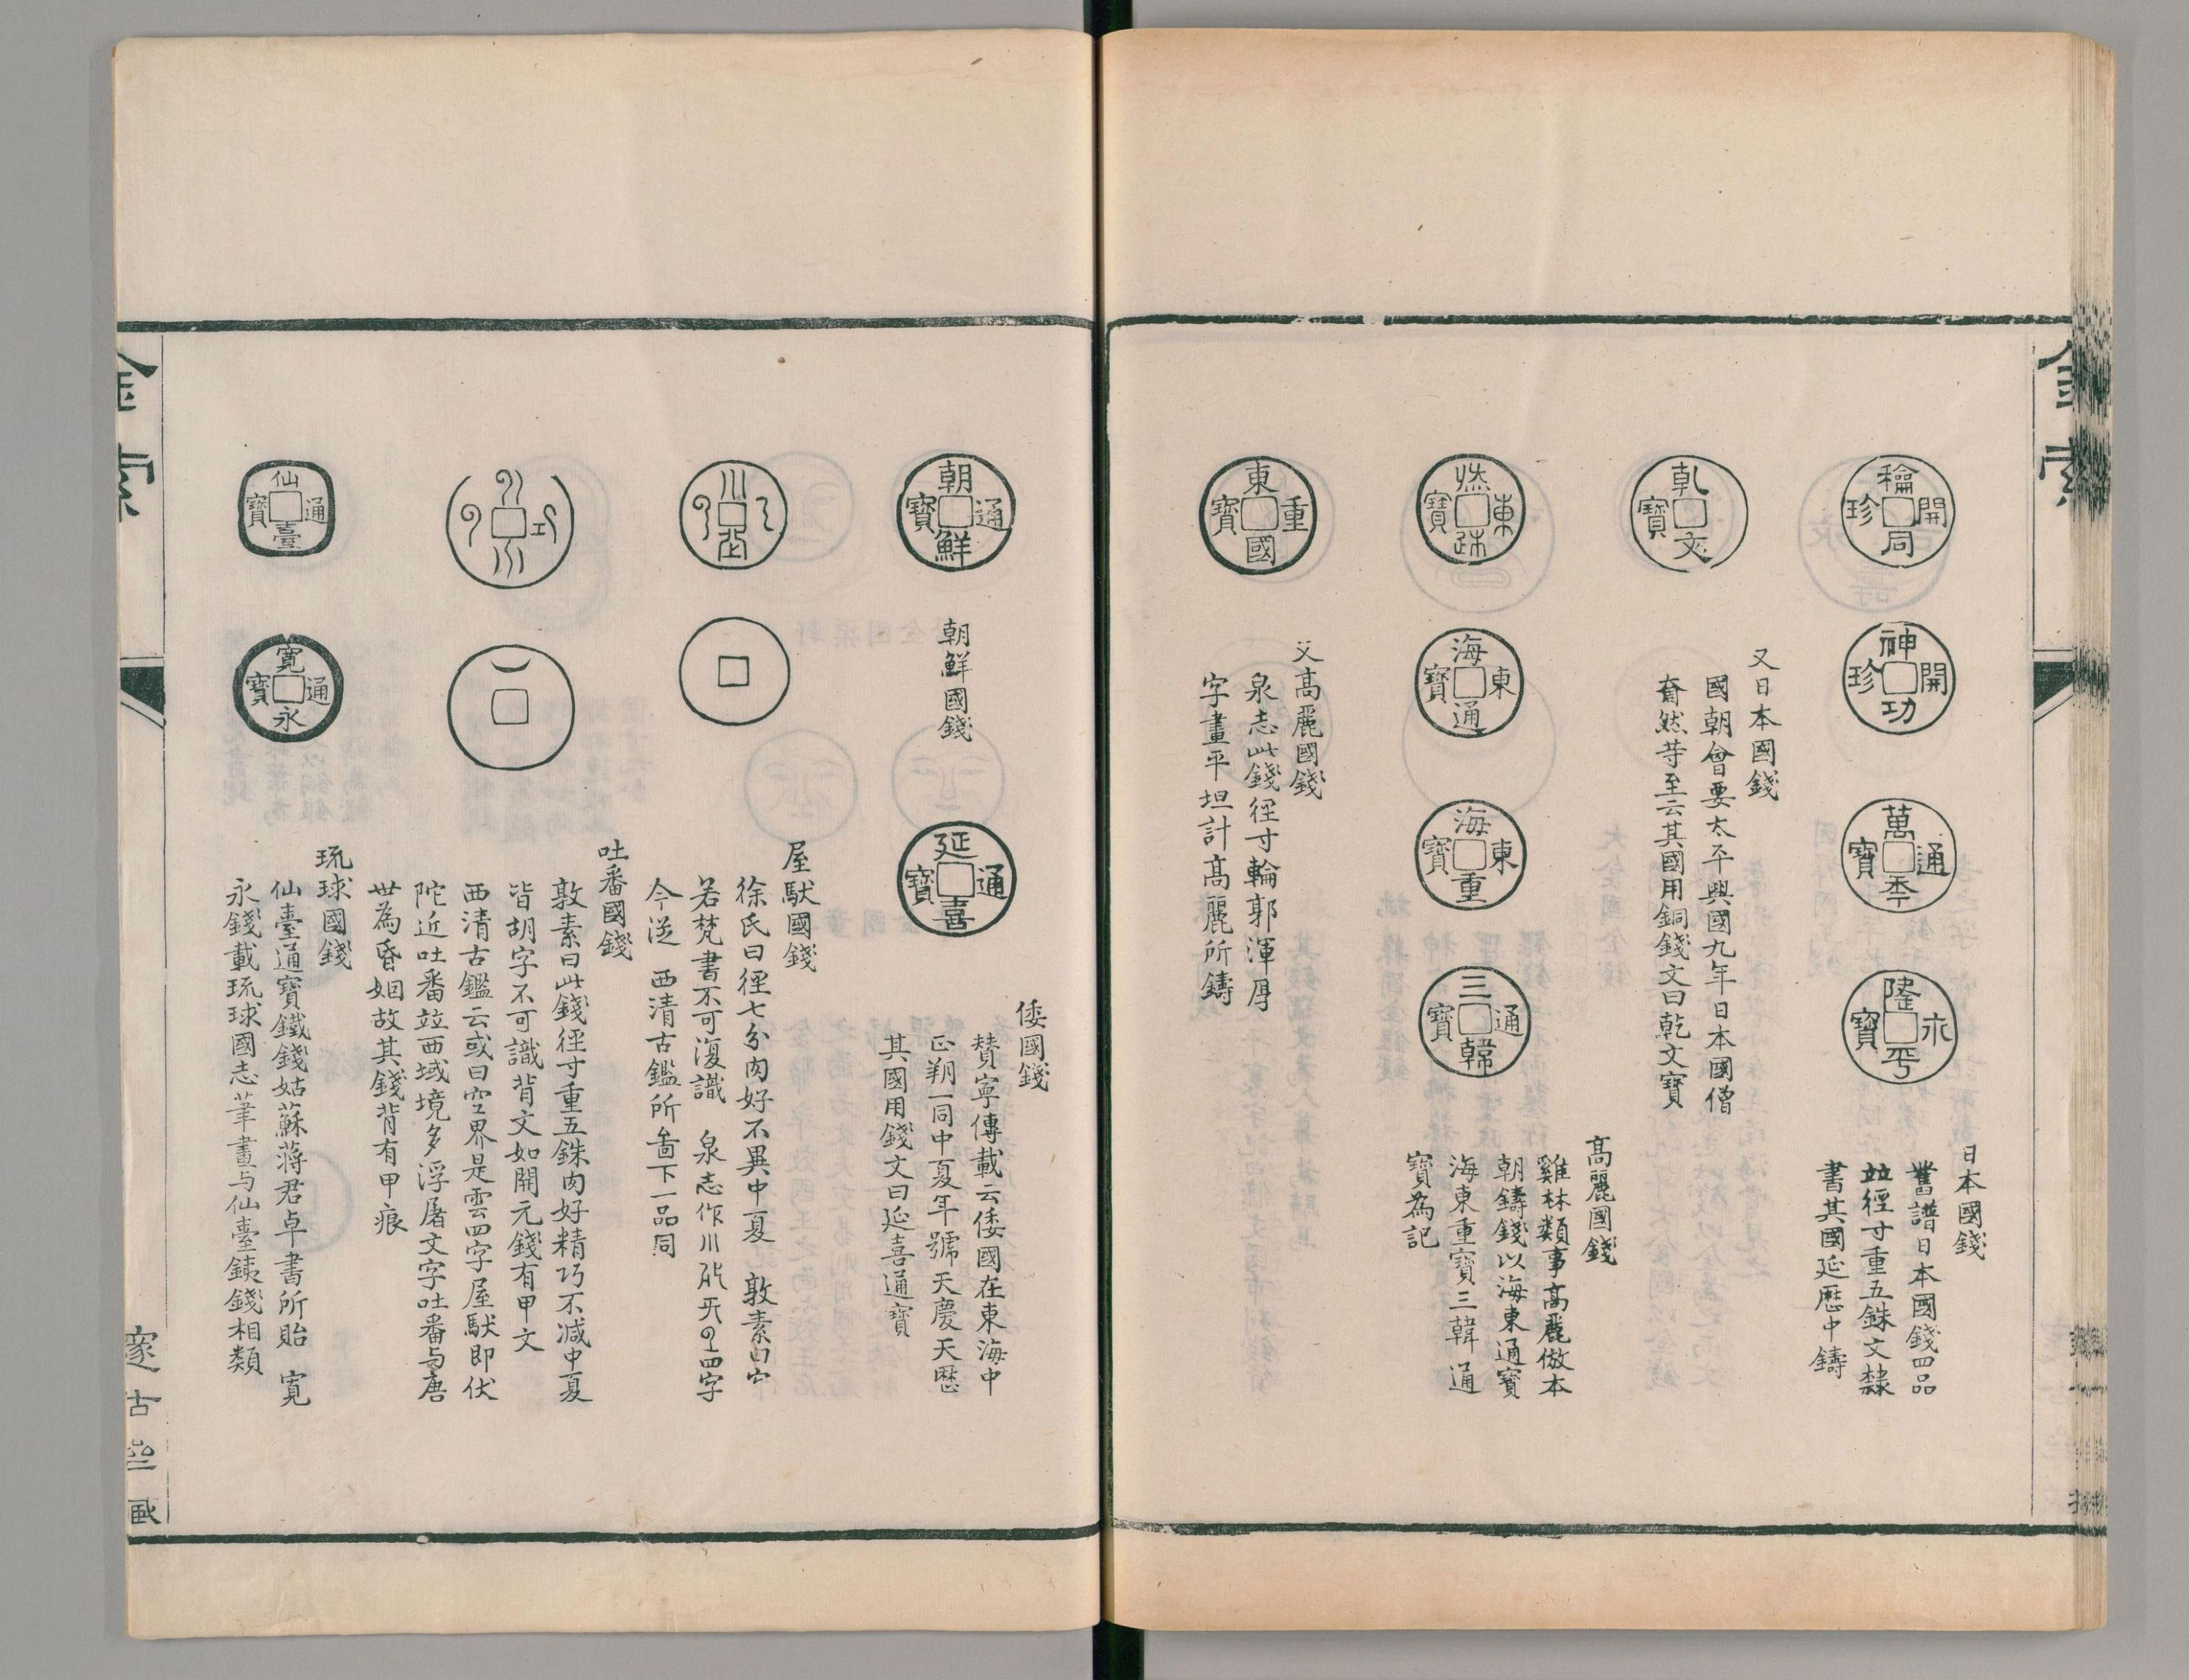 金索
日本國錢
舊譜日本國錢四品
竝徑寸重五銖文隸
書其國延歷中鑄
神開功珍
萬通秊寶
隆永平寶
又日本國錢
國朝會要太平興國九年日本國僧
奝然等至云其國用銅錢文曰乾文寶
乾文寶
高麗國錢
雞林類事高麗倣本
朝鑄錢以海東通寶
海東重寶三韓通
寶為記
海東通寶
海東重寶
三通韓寶
又高麗國錢
泉志此錢徑寸輪郭渾厚
字畫平坦計高麗所鑄
東重國寶
朝通鮮寶
朝鮮國錢
延通喜寶
倭國錢
贊寧傳載云倭國在東海中
正朔一同中夏年號天慶天歷
其國用錢文曰延喜通寶
屋馱國錢
徐氏曰徑七分肉好不異中夏 敦素曰
若梵書不可復識 泉志作 四字
今從 西清古鑑所啚下一品同
吐番國錢
敦素曰此錢徑寸重五銖肉好精巧不減中夏
皆胡字不可識背文如開元錢有甲文
西清古鑑云或曰空界是雲四字屋馱即伏
陀近吐番竝西域境多浮屠文字吐番与唐
世為昏姻故其錢背有甲痕
琉球國錢
仙臺通寶鐵錢姑蘇蔣君卓書所貽 寬
永錢載琉球國志筆畫与仙臺銕錢相類
仙通臺寶
寬通永寶
金索
邃古坐